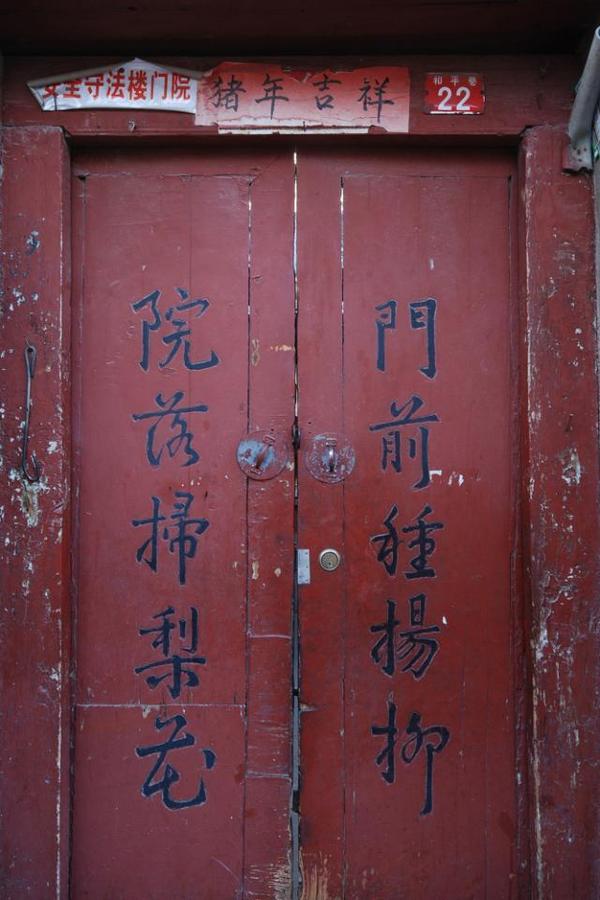 安全守法楼门院
猪年吉祥
和平巷
22
門前種揚柳
院落掃梨花